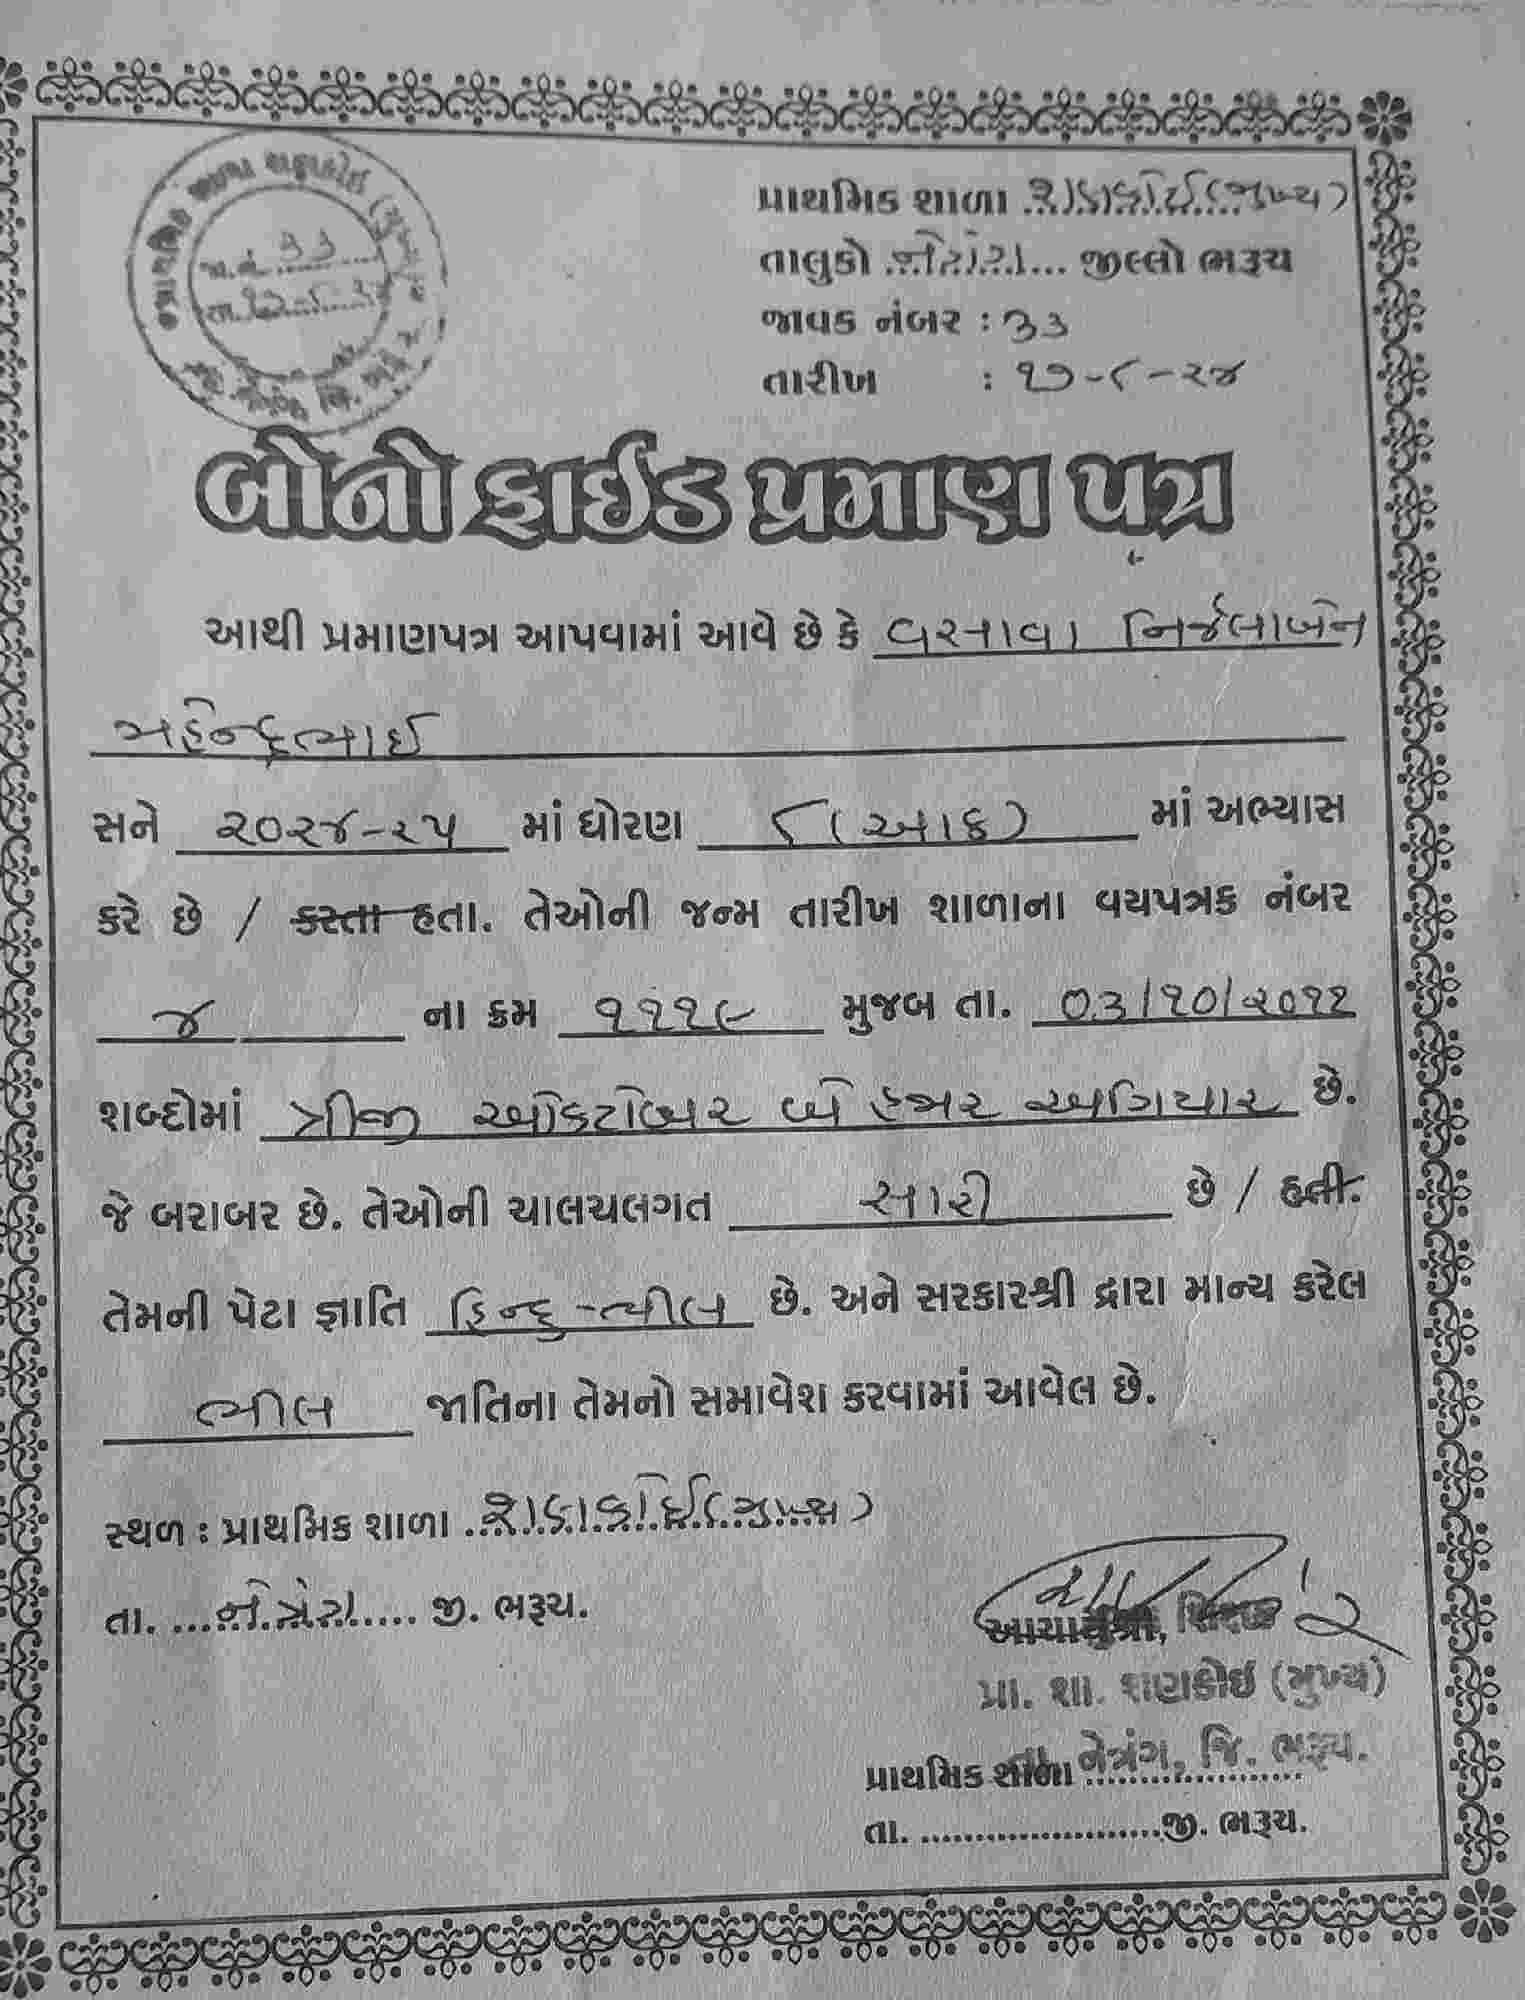 જા.નં. ૩૩
પ્રાથમિક શાળા શણકોઈ (મુખ્ય)
તાલુકો નેત્રંગ જીલ્લો ભરૂચ
જાવક નંબર : ૩૩
તારીખ : ૧૭-૮-૨૪
બોનોફાઈડ પ્રમાણ પત્ર
આથી પ્રમાણપત્ર આપવામાં આવે છે કે વસાવા નિર્જલાબેન
મહેન્દ્રભાઈ
સને ૨૦૨૪-૨૫ માં ધોરણ ૮ (આઠ) માં અભ્યાસ
કરે છે / કરતા હતા. તેઓની જન્મ તારીખ શાળાના વયપત્રક નંબર
૪ ના ક્રમ ૧૧૧૯ મુજબ તા. ૦૩/૧૦/૨૦૧૧
શબ્દોમાં ત્રીજી ઓકટોબર બે હજાર અગિયાર છે.
જે બરાબર છે. તેઓની ચાલચલગત સારી છે / હતી.
તેમની પેટા જ્ઞાતિ હિન્દુ-ભીલ છે. અને સરકારશ્રી દ્વારા માન્ય કરેલ
ભીલ જાતિના તેમનો સમાવેશ કરવામાં આવેલ છે.
સ્થળ : પ્રાથમિક શાળા શણકોઈ (મુખ્ય)
તા. નેત્રંગ જી. ભરૂચ.
આચાર્યશ્રી, શિક્ષક
પ્રા. શા. શણકોઈ (મુખ્ય)
તા. નેત્રંગ, જિ. ભરૂચ.
પ્રાથમિક શાળા ....................
તા. ......................જી. ભરૂચ.